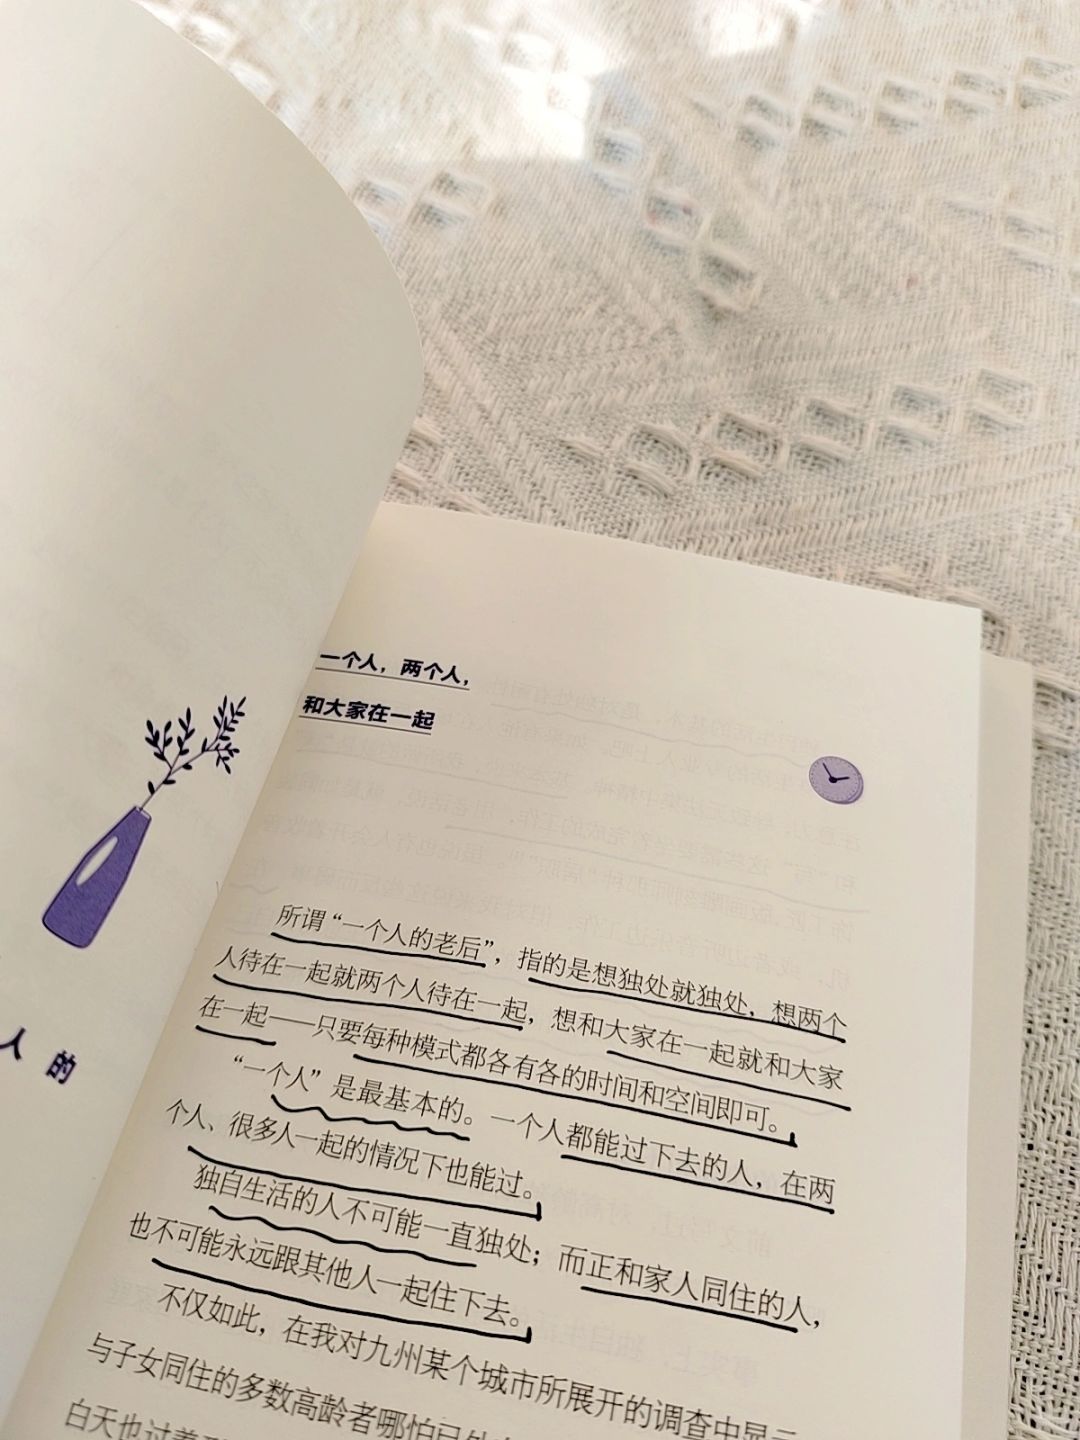 人的
一个人，两个人，
和大家在一起
所谓“一个人的老后”，指的是想独处就独处，想两个
人待在一起就两个人待在一起，想和大家在一起就和大家
在一起——只要每种模式都各有各的时间和空间即可。
“一个人”是最基本的。一个人都能过下去的人，在两
个人、很多人一起的情况下也能过。
独自生活的人不可能一直独处；而正和家人同住的人，
也不可能永远跟其他人一起住下去。
不仅如此，在我对九州某个城市所展开的调查中显示
与子女同住的多数高龄者哪怕已
白天也过着